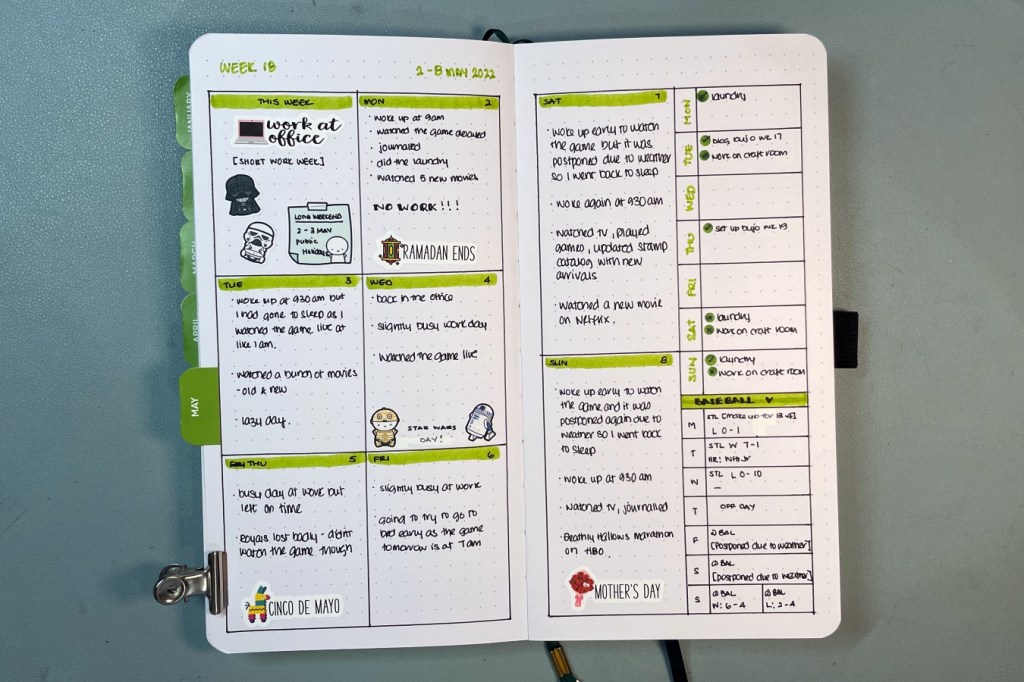 WEEK 18
2 - 8 MAY 2022
THIS WEEK
work at
office
[SHORT WORK WEEK]
LONG WEEKEND
2 - 3 MAY
PUBLIC
HOLIDAYS
MON 2
· woke up at 9am
· watched the game delayed
· journalled
· did the laundry
· watched 5 new movies
NO WORK!!!
RAMADAN ENDS
TUE 3
· woke up at 930am but
I had gone to sleep as I
watched the game live at
like 1am.
· watched a bunch of movies
- old & new
· lazy day.
WED 4
· back in the office
· slightly busy work day
· watched the game live
STAR WARS
DAY!
THU 5
· busy day at work but
left on time
· Royals lost badly - didn't
watch the game though
CINCO DE MAYO
FRI 6
· slightly busy at work
· going to try to go to
bed early as the game
tomorrow is at 7am
SAT 7
· woke up early to watch
the game but it was
postponed due to weather
so I went back to sleep
· woke again at 930am
· watched tv, played
games, updated stamp
catalog with new
arrivals
· watched a new movie
on Netflix.
SUN 8
· woke up early to watch
the game and it was
postponed again due to
weather so I went back
to sleep
· woke up at 930am
· watched tv, journalled
· Deathly Hallows marathon
on HBO.
MOTHER'S DAY
MON
laundry
TUE
blog bujo wk 17
work on craft room
WED
THU
set up bujo wk 19
FRI
SAT
laundry
work on craft room
SUN
laundry
work on craft room
BASEBALL ♥
M STL [make up for
L 0-1
T STL W 7-1
HR:
W STL L 0-10
—
T OFF DAY
F @ BAL
[postponed due to weather]
S @ BAL
[postponed due to weather]
S @ BAL
W: 6-4
@ BAL
L: 2-4
JANUARY
MARCH
APRIL
MAY